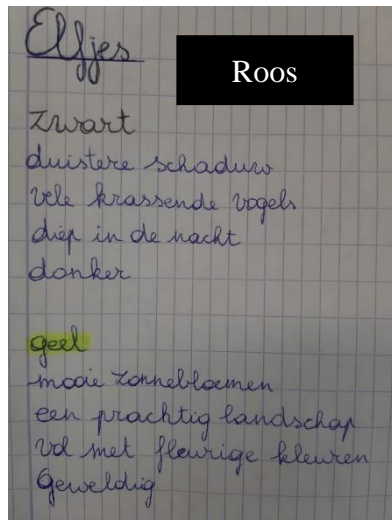 Elfjes
Roos
Zwart
duistere schaduw
vele krassende vogels
diep in de nacht
donker
geel
mooie zonnebloemen
een prachtig landschap
vol met fleurige kleuren
Geweldig